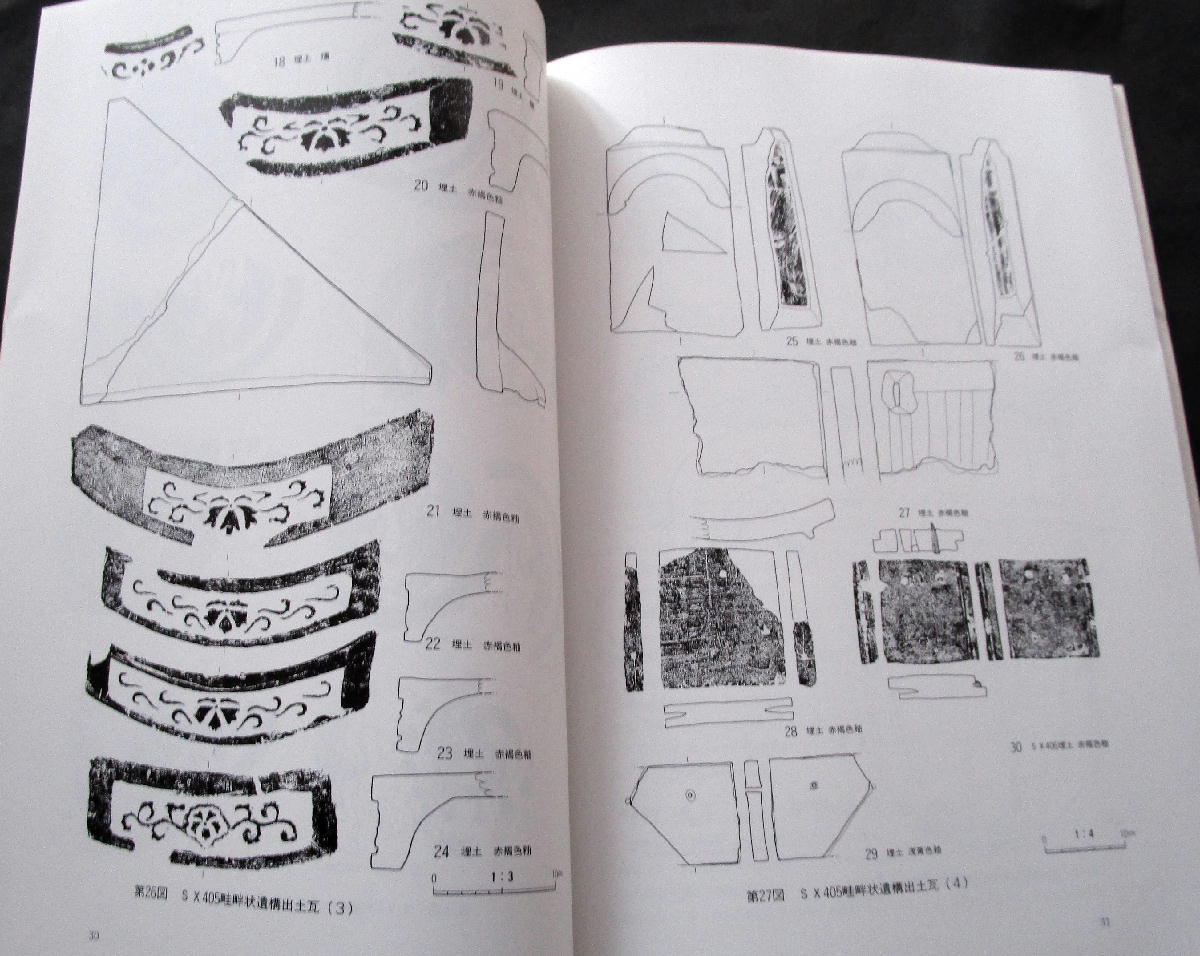 18 埋土 燻
19 埋土 燻
20 埋土 赤褐色釉
21 埋土 赤褐色釉
22 埋土 赤褐色釉
23 埋土 赤褐色釉
24 埋土 赤褐色釉
0 1:3 10cm
第26図 SX405畦畔状遺構出土瓦(3)
30
25 埋土 赤褐色釉
26 埋土 赤褐色釉
27 埋土 赤褐色釉
28 埋土 赤褐色釉
30 SX406埋土 赤褐色釉
29 埋土 浅黄色釉
0 1:4 10cm
第27図 SX405畦畔状遺構出土瓦(4)
31